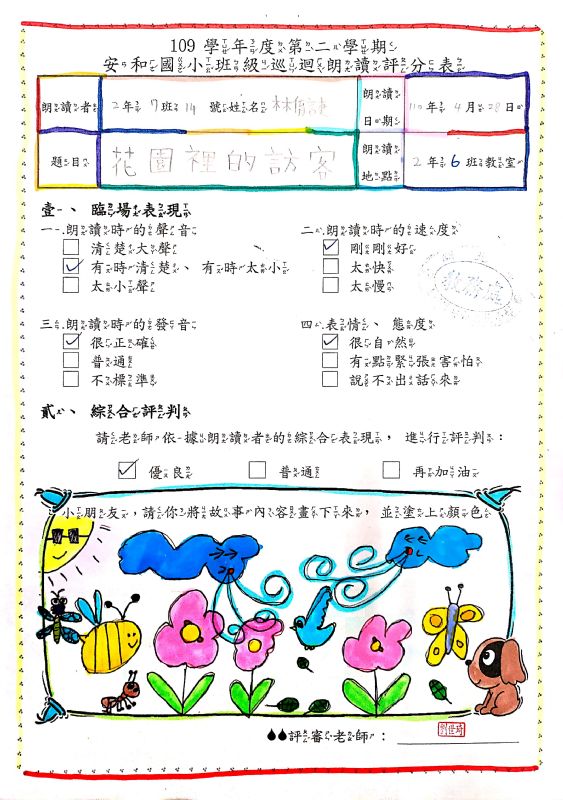 109 學年度第二學期
安和國小班級巡迴朗讀評分表
朗讀者 2年7班14號姓名 林 朗讀日期 110年4月28日
題目 花園裡的訪客 朗讀地點 2年6班教室
壹、臨場表現
一、朗讀時的聲音
清楚大聲
有時清楚、有時太小
太小聲
二、朗讀時的速度
剛剛好
太快
太慢
教務處
三、朗讀時的發音
很正確
普通
不標準
四、表情、態度
很自然
有點緊張害怕
說不出話來
貳、綜合評判
請老師依據朗讀者的綜合表現，進行評判：
優良 普通 再加油
小朋友，請你將故事內容畫下來，並塗上顏色
評審老師：